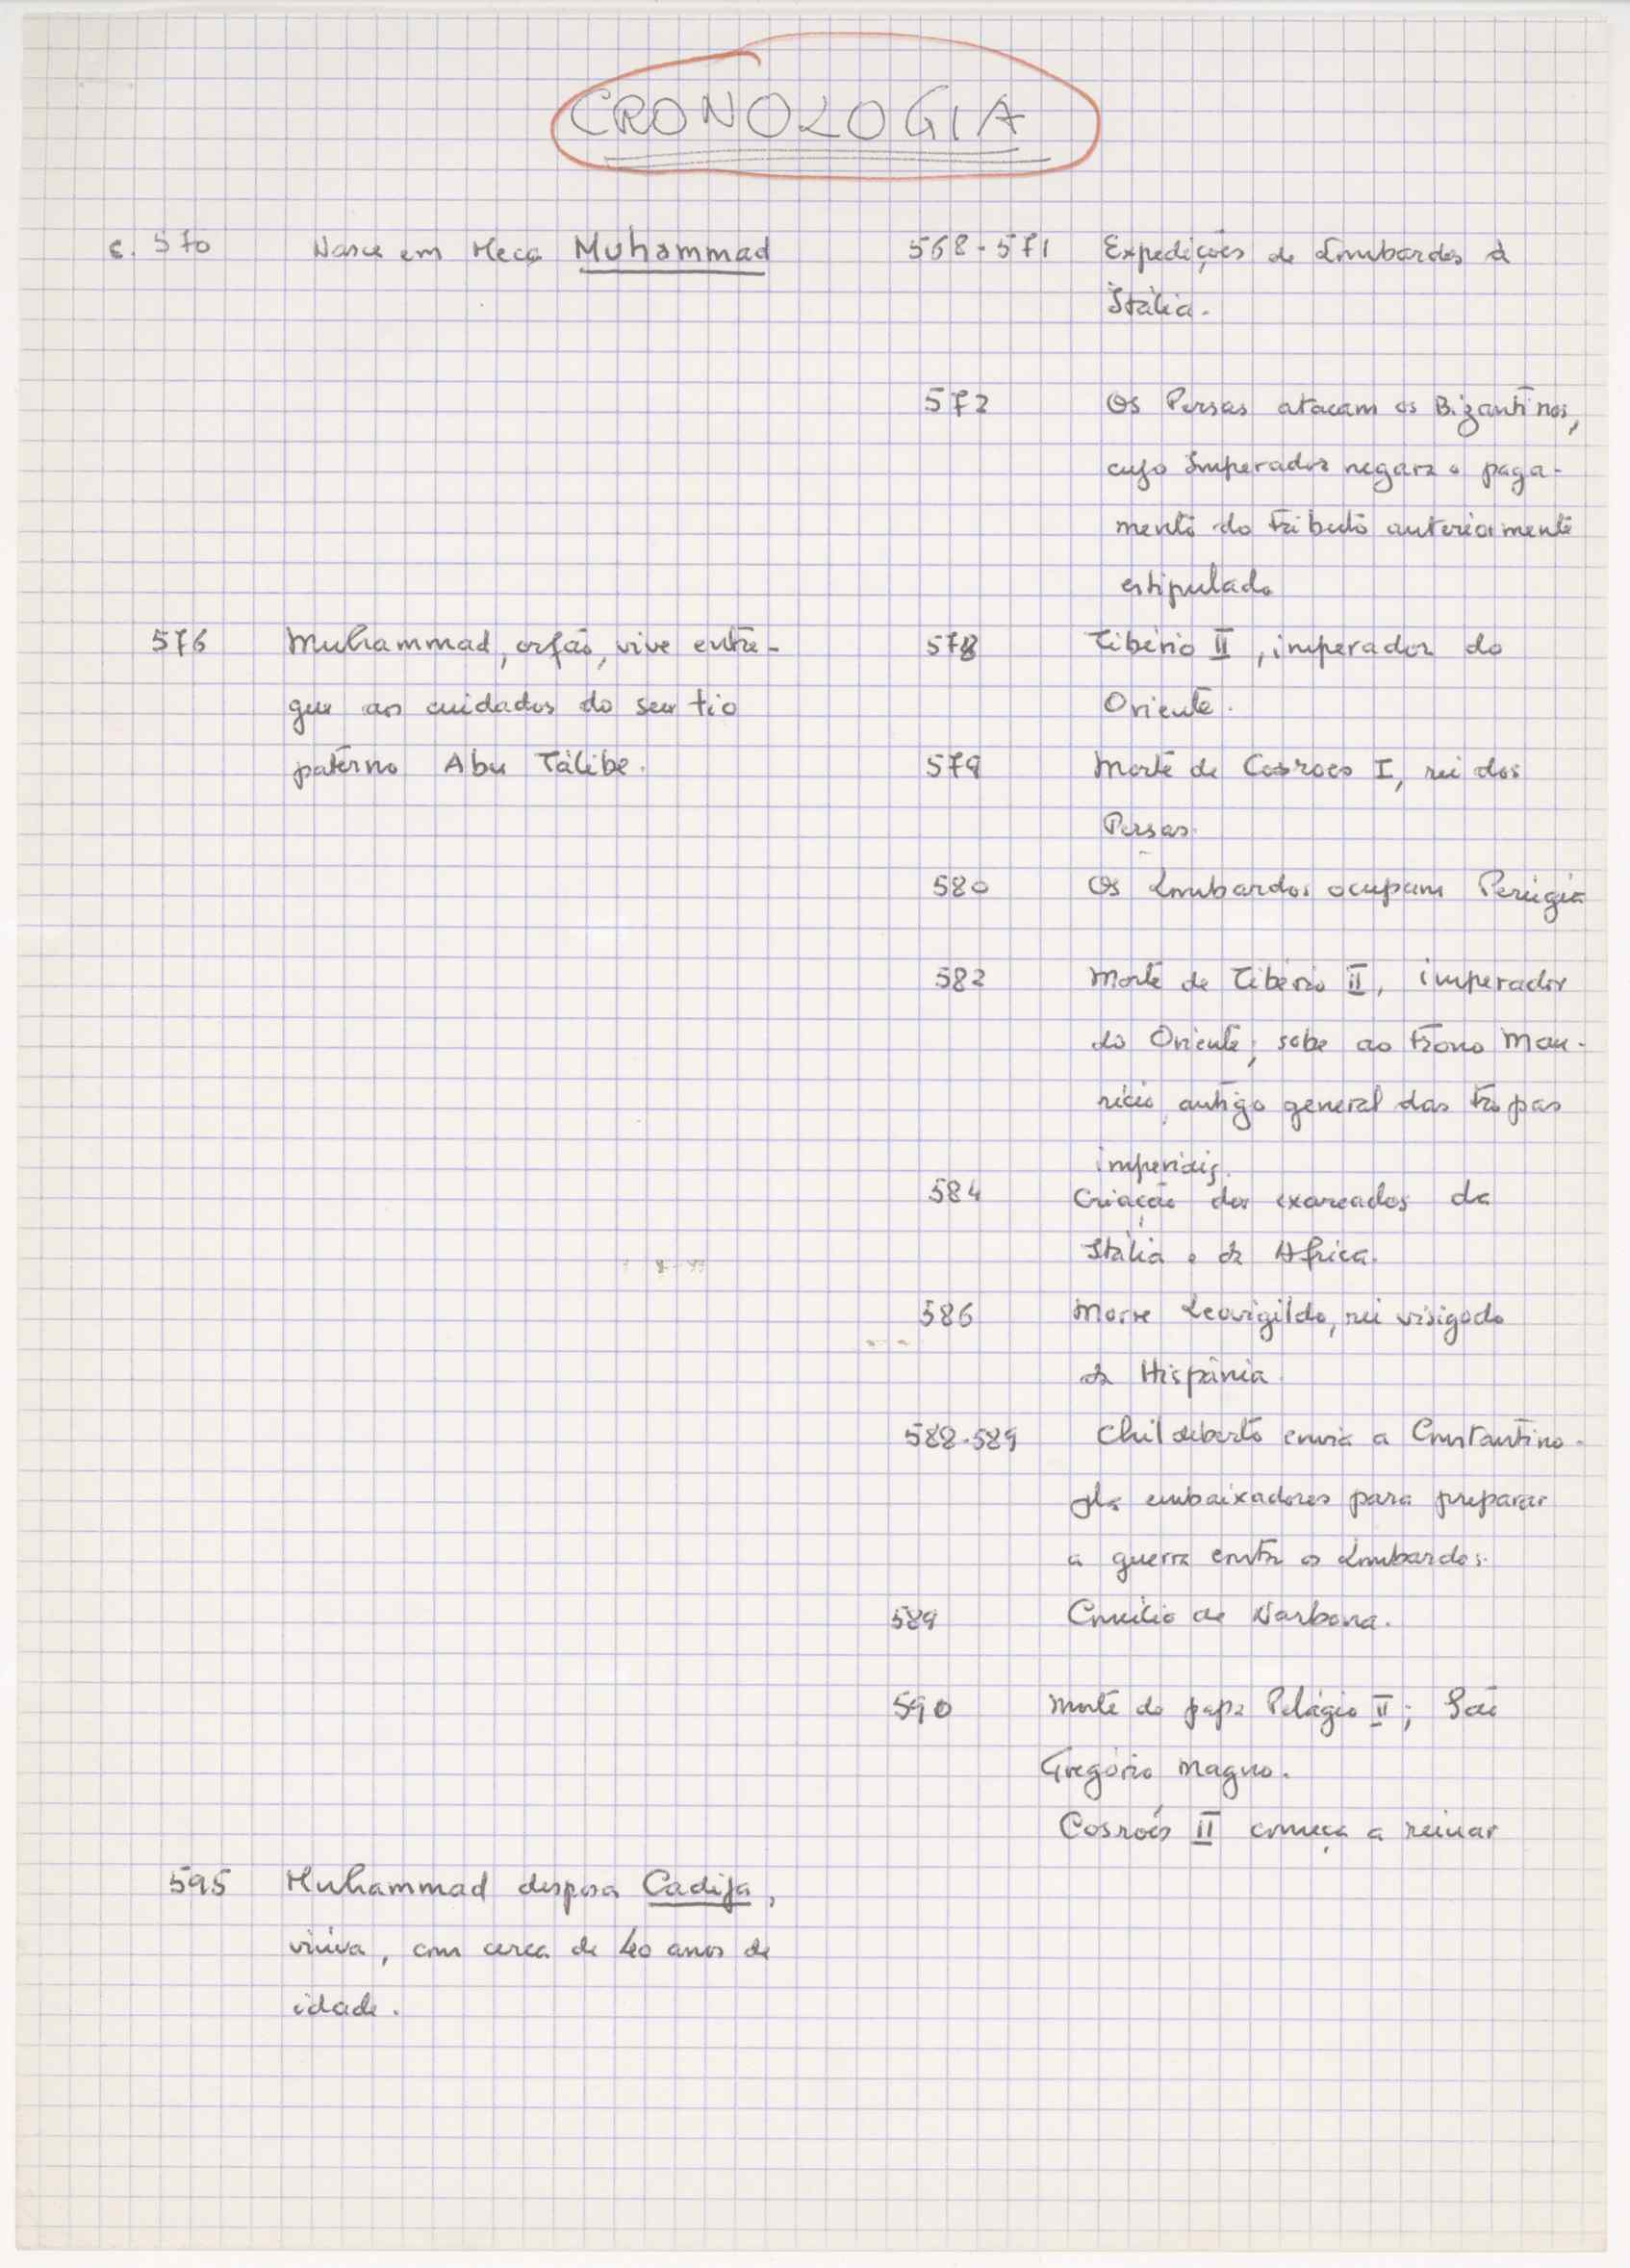 CRONOLOGIA
c. 570 Nasce em Meca Muhammad
568-571 Expedições de Lombardos à
Itália.
572 Os Persas atacam os Bizantinos,
cujo Imperador negara o paga-
mento do tributo anteriormente
estipulado
576 Muhammad, orfão, vive entre-
gue ao cuidados do seu tio
paterno Abu Tálibe.
578 Tibério II, imperador do
Oriente.
579 Morte de Cosroes I, rei dos
Persas.
580 Os Lombardos ocupam Perúgia
582 Morte de Tibério II, imperador
do Oriente; sobe ao trono Mau-
rício, antigo general das tropas
imperiais.
584 Criação dos exarcados da
Itália e da Africa.
586 Morre Leovigildo, rei visigodo
da Hispânia.
588-589 Childeberto envia a Constantino-
pla embaixadores para preparar
a guerra contra os Lombardos.
589 Concílio de Narbona.
590 Morte do papa Pelágio II; São
Gregório Magno.
Cosroés II começa a reinar
595 Muhammad desposa Cadija,
viúva, com cerca de 40 anos de
idade.